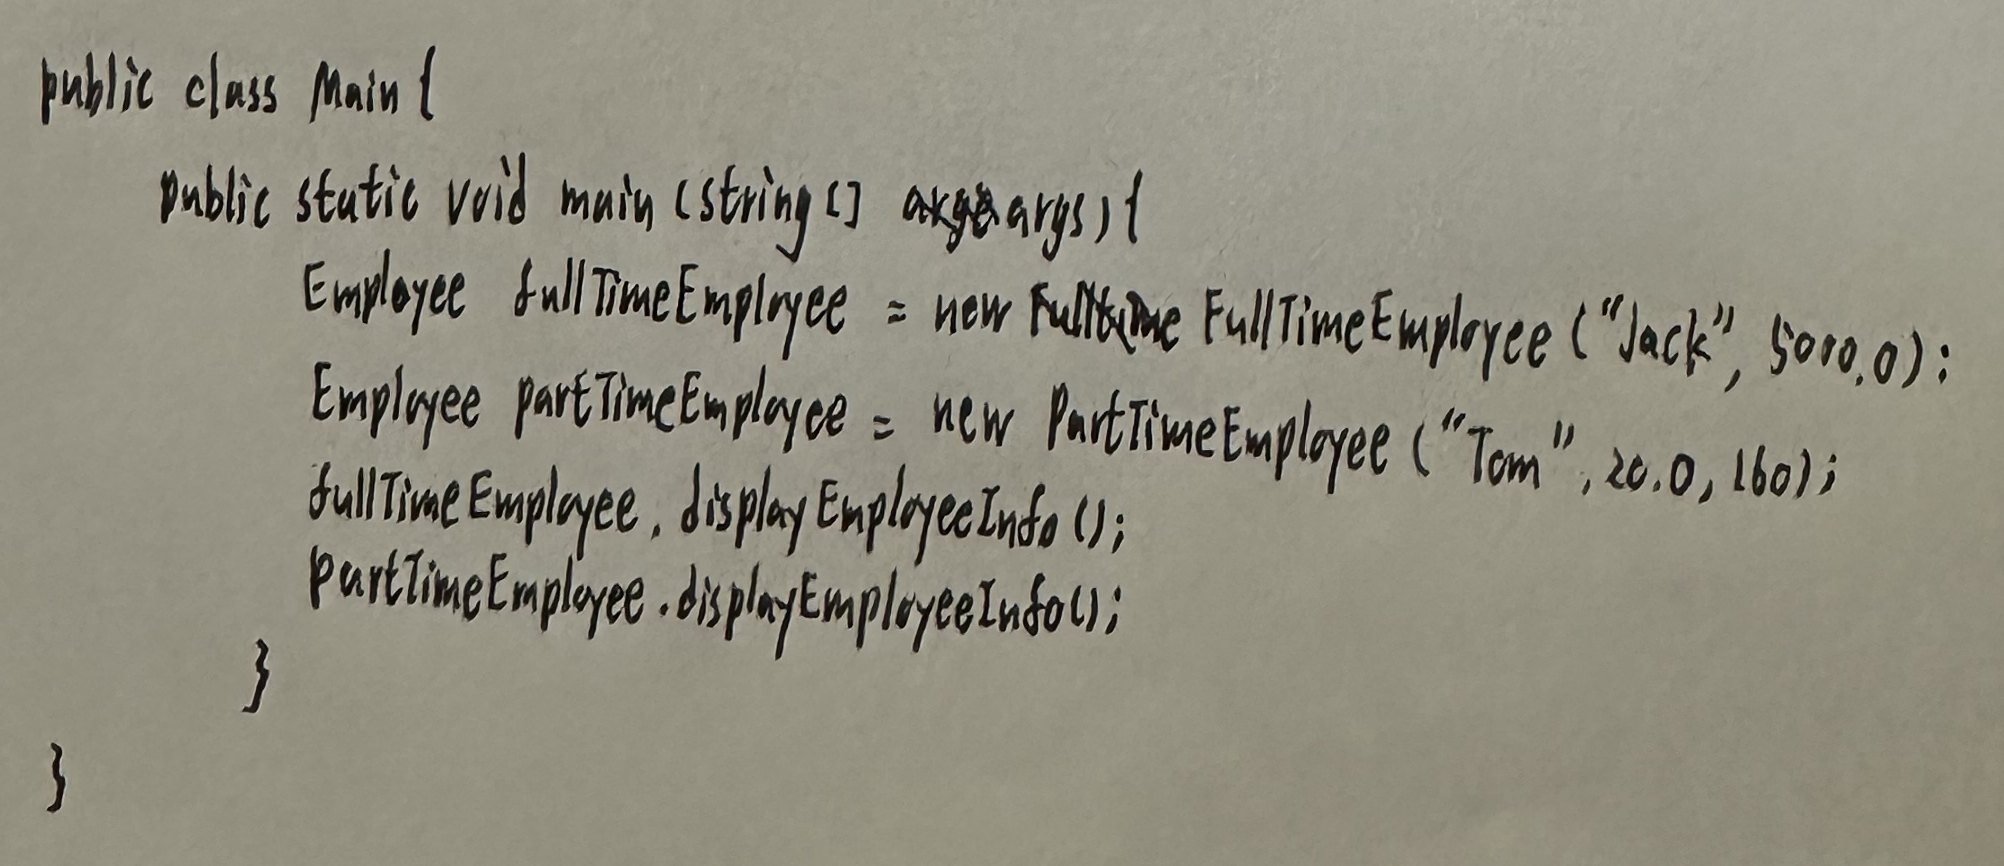 public class Main {
public static void main (string [] args) {
Employee fullTimeEmployee = new FullTimeEmployee ("Jack", 5000.0);
Employee partTimeEmployee = new PartTimeEmployee ("Tom", 20.0, 160);
fullTimeEmployee.displayEmployeeInfo ();
partTimeEmployee.displayEmployeeInfo();
}
}